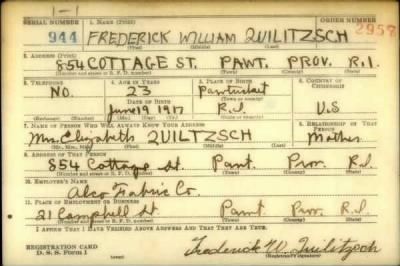 1-1
SERIAL NUMBER 1. NAME (Print) ORDER NUMBER
944 FREDERICK WILLIAM QUILITZSCH 2958
(First) (Middle) (Last)
2. ADDRESS (Print)
854 COTTAGE ST. PAWT. PROV. R.I.
(Number and street or R. F. D. number) (Town) (County) (State)
3. TELEPHONE 4. AGE IN YEARS 5. PLACE OF BIRTH 6. COUNTRY OF CITIZENSHIP
NO. 23 Pawtucket
DATE OF BIRTH (Town or county)
June 19 1917 R.I. U.S
(Exchange) (Number) (Mo.) (Day) (Yr.) (State or country)
7. NAME OF PERSON WHO WILL ALWAYS KNOW YOUR ADDRESS 8. RELATIONSHIP OF THAT PERSON
Mrs. Elizabeth QUILTZSCH Mother
(Mr., Mrs., Miss) (First) (Middle) (Last)
9. ADDRESS OF THAT PERSON
854 Cottage St. Pawt. Prov. R.I.
(Number and street or R. F. D. number) (Town) (County) (State)
10. EMPLOYER'S NAME
Alco Fabric Co.
11. PLACE OF EMPLOYMENT OR BUSINESS
21 Campbell St. Pawt Prov. R.I.
(Number and street or R. F. D. number) (Town) (County) (State)
I AFFIRM THAT I HAVE VERIFIED ABOVE ANSWERS AND THAT THEY ARE TRUE.
REGISTRATION CARD
D. S. S. Form 1 Frederick W. Quilitzsch
(Registrant's signature)